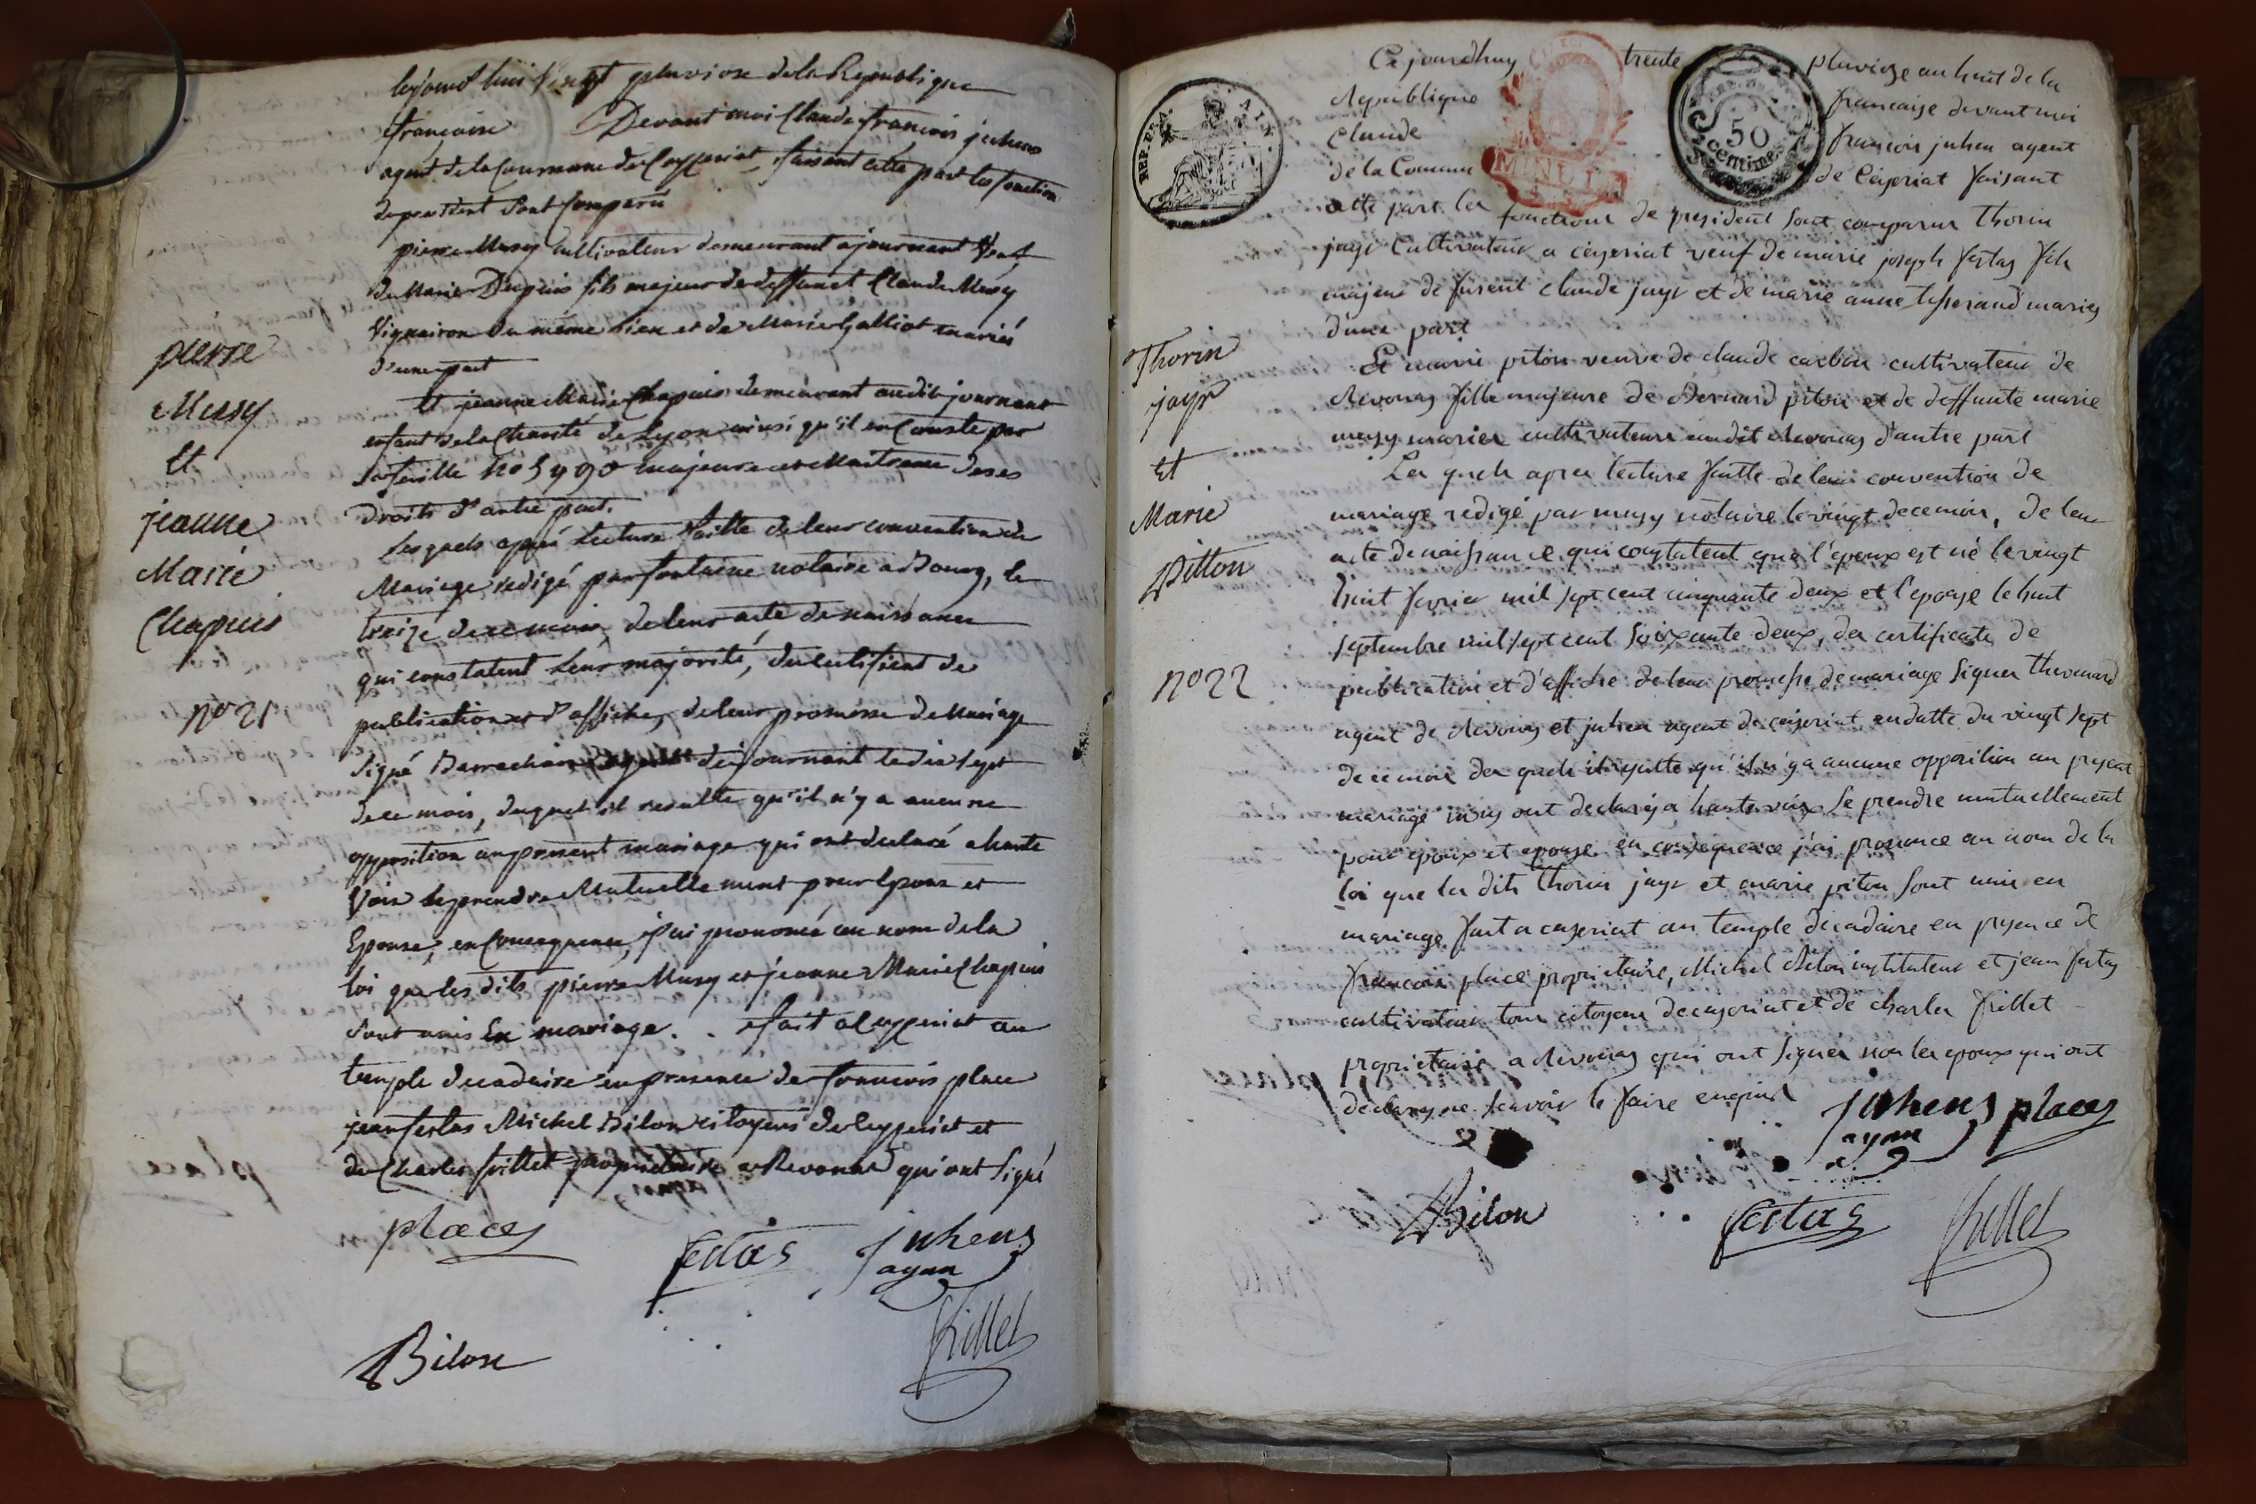 pierre
Mussy
Et
jeanne
Marie
Chapuis
n° 21
cejourd'hui vingt pluviose de la Republique
francoise Devant moi Claude francois juhens
agent de la Commune de Ceyzeriat, faisant cette part les fonction
de president sont Comparu
pierre Musy Cultivateur demeurant a journant Veuf
de Marie Dupuis fils majeur de deffunct Claude Musy
Vigneron du même lieu et de Marie Galliot mariés
d'une part
Et jeanne Marie Chapuis demeurant audit journant
enfant de la Charité de Lyon ainsi qu'il en Conste par
sa feuille majeure et Maitresse de ses
droits d'autre part.
Lesquels aprés Lecture faitte de leur convention de
Mariage redigé par fontaine notaire a Bourg, le
treize de ce mois, de leurs acte de naissance
qui constatent Leur majorité, du Certificat de
publication et d'affiches, de leur promesse de Mariage
signé agent de journant le dix sept
de ce mois, duquel il resulte qu'il n'y a aucune
opposition au present mariage qui ont declaré a haute
Voix se prendre Mutuellement pour Epoux et
Epouse, en Consequence, j'ai prononcé au nom de la
loi que les dits pierre Musy et jeanne Marie Chapuis
sont unis En mariage. . fait a Ceyzeriat au
temple decadaire en presence de francois place
jean festas Michel Bilon citoyens de Ceyzeriat et
de Charles frillet proprietaire a Revonas qui ont signé
places
festas
juhens
agent
Bilon
frillet
REP. FRA.
AIN
50
centimes
Thorin
jayr
et
Marie
Pitton
n° 22
Ce jourdhuy trente pluviose an huit de la
Republique francaise devant moi
Claude francois juhen agent
de la Commune de Ceyzeriat faisant
cette part les fonctions de president sont comparus Thorin
jayr Cultivateur a ceyzeriat veuf de marie joseph festas fils
majeur de furent claude jayr et de marie anne tisserand mariés
d'une part
Et marie piton veuve de claude carbon cultivateur de
Revonas fille majeure de Bernard piton et de deffunte marie
musy mariés cultivateurs audit Revonas d'autre part
Les quels apres lecture faitte de leur convention de
mariage redigé par musy notaire le vingt de ce mois, de leur
acte de naissance qui constatent que l'epoux est né le vingt
huit fevrier mil sept cent cinquante deux et l'epouse le huit
septembre mil sept cent soixante deux, des certificats de
publication et d'affiche de leur promesse de mariage signés thevenard
agent de Revonas et juhen agent de ceyzeriat en datte du vingt sept
de ce mois des quels il resulte qu'il n'y a aucune opposition au present
mariage ont declaré a haute voix se prendre mutuellement
pour epoux et epouse en consequence j'ai prononce au nom de la
loi que les dits Thorin jayr et marie piton sont unis en
mariage fait a ceyzeriat au temple decadaire en presence de
francois place proprietaire, Michel Bilon instituteur et jean festas
cultivateur tous citoyens de ceyzeriat et de charles frillet
proprietaire a Revonas qui ont signés non les epoux qui ont
declaré ne scavoir le faire enquis
juhens
agent
places
Bilon
festas
frillet